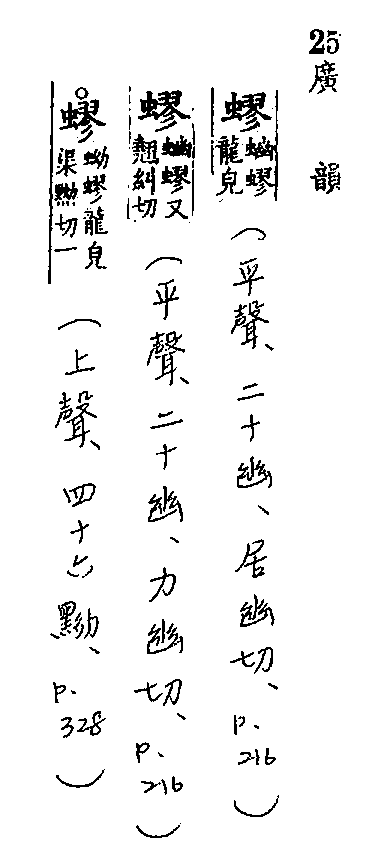 25 廣韻
蟉 蚴蟉龍皃 (平聲、二十幽、居幽切、p.216)
蟉 蚴蟉又翹糾切 (平聲、二十幽、力幽切、p.216)
蟉 蚴蟉龍皃渠黝切一 (上聲、四十六黝、p.328)